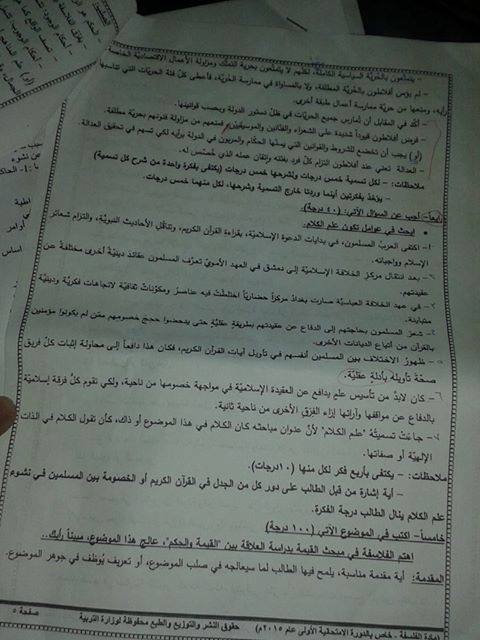 - يتمتعون بالحرية السياسية الكاملة، لكنهم لا يتمتعون بحرية التملك ومزاولة الأعمال الاقتصادية
- لم يؤمن أفلاطون بالحرية المطلقة، ولا بالمساواة في ممارسة الحرية، فأعطى كل فئة الحريات التي تناسبها
رأيه، ومنعها من حرية ممارسة أعمال طبقة أخرى.
- أكد في المقابل أن تُمارس جميع الحريات في ظل دستور الدولة وبحسب قوانينها.
- فرض أفلاطون قيوداً شديدة على الشعراء والفنانين والموسيقيين، فمنعهم من مزاولة فنونهم بحرية مطلقة.
(أو) يجب أن تخضع للشروط والقوانين التي يمليها الحكام والمربون في الدولة برأيه لكي تسهم في تحقيق العدالة.
- العدالة تعني عند أفلاطون التزام كل فرد بفئته وإتقان عمله الذي خُصص له.
ملاحظات: - لكل تسمية خمس درجات ولشرحها خمس درجات (يكتفى بفكرة واحدة من شرح كل تسمية)
- يؤخذ بفكرتين أينما وردتا خارج التسمية وشرحها، لكل منهما خمس درجات.
رابعاً- أجب عن السؤال الآتي: (٤٠ درجة).
• ابحث في عوامل تكون علم الكلام.
١- اكتفى العرب المسلمون، في بدايات الدعوة الإسلامية، بقراءة القرآن الكريم، وتناقل الأحاديث النبوية، والتزام شعائر
الإسلام وواجباته.
٢- بعد انتقال مركز الخلافة الإسلامية إلى دمشق في العهد الأموي تعرّف المسلمون عقائد دينية أخرى مختلفة عن
عقيدتهم.
٣- في عهد الخلافة العباسية صارت بغداد مركزاً حضارياً اختلطت فيه عناصر ومكونات ثقافية لاتجاهات فكرية ودينية
متباينة.
٤- شعر المسلمون بحاجتهم إلى الدفاع عن عقيدتهم بطريقة عقلية حتى يدحضوا حجج خصومهم ممن لم يكونوا مؤمنين
بالقرآن من أتباع الديانات الأخرى.
٥- ظهور الاختلاف بين المسلمين أنفسهم في تأويل آيات القرآن الكريم، فكان هذا دافعاً إلى محاولة إثبات كل فريق
صحة تأويله بأدلة عقلية.
٦- كان لابدّ من تأسيس علم يدافع عن العقيدة الإسلامية في مواجهة خصومها من ناحية، ولكي تقوم كل فرقة إسلامية
بالدفاع عن مواقفها وآرائها إزاء الفرق الأخرى من ناحية ثانية.
٧- جاءت تسميته "علم الكلام" لأنّ عنوان مباحثه كان الكلام في هذا الموضوع أو ذاك، كأن تقول الكلام في الذات
الإلهية أو صفاتها.
ملاحظات: - يكتفى بأربع فكر لكل منها (١٠ درجات).
- أية إشارة من قبل الطالب على دور كل من الجدل في القرآن الكريم أو الخصومة بين المسلمين في نشوء
علم الكلام ينال الطالب درجة الفكرة.
خامساً- اكتب في الموضوع الآتي (١٠٠ درجة)
اهتم الفلاسفة في مبحث القيمة بدراسة العلاقة بين "القيمة والحكم"، عالج هذا الموضوع، مبيناً رأيك..
المقدمة: أية مقدمة مناسبة، يلمح فيها الطالب لما سيعالجه في صلب الموضوع، أو تعريف يُوظف في جوهر الموضوع.
(مادة الفلسفة - خاص بالدورة الامتحانية الأولى عام ٢٠١٥م) حقوق النشر والتوزيع والطبع محفوظة لوزارة التربية صفحة ٥